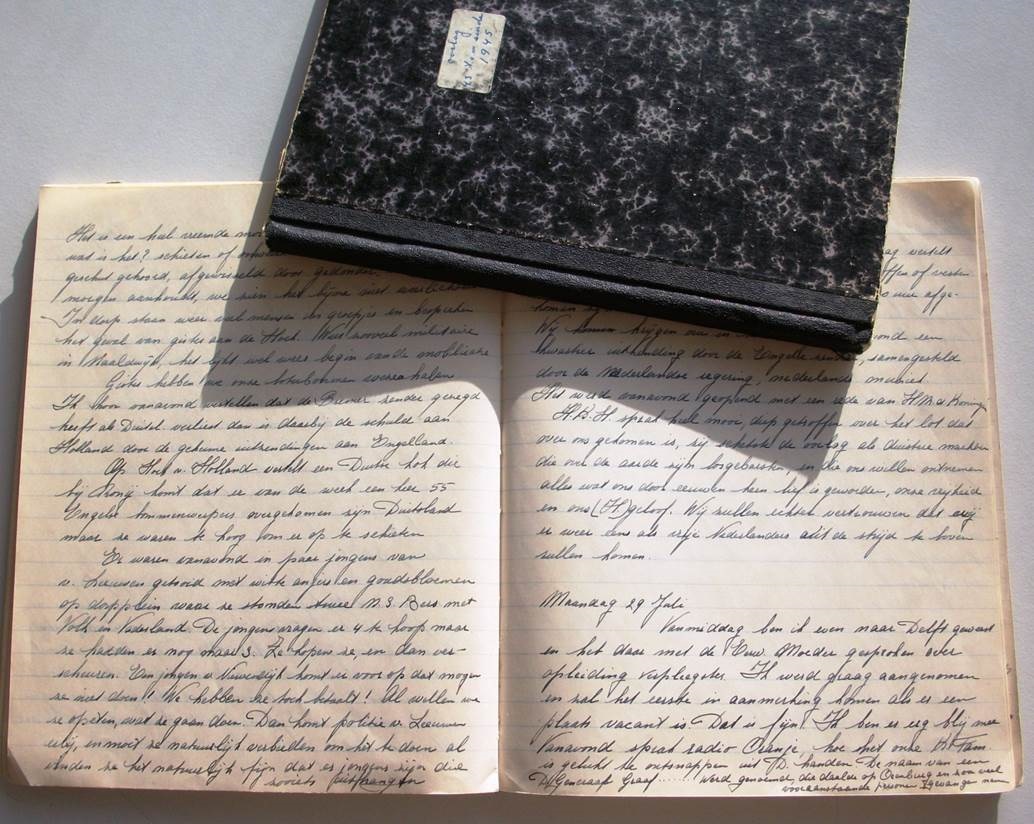 oorlog
15-X- – einde
1945
Het is een heel vreemde
wat is het? schieten of
geschut gehoord, afgewisseld door gedonder.
morgen aanhoudt, we zien het bijna niet
In dorp staan weer veel mensen in groepjes en bespreken
het geval van gister aan de Hoek. Was zooveel militaire
in Naaldwijk, het lijkt wel weer begin van de mobilisatie
Gister hebben we onze boterbonnen weren halen
Ik hoor vanavond vertellen dat de Booser zender gezegd
heeft als Duitsl. verliest dan is daarbij de schuld aan
Holland door de geheime uitzendingen aan Engelland.
Op Hoek v. Holland vertelt een Duitse kok die
bij komt dat er van de week een keer 55
Engelse bommenwerpers overgekomen zijn Duitsland
maar ze waren te hoog om er op te schieten
Er waren vanavond 'n paar jongens van
v. Leeuwen getooid met witte anjers en goudsbloemen
op dorpplein waar ze stonden twee N.S. Bers met
Volk en Vaderland. De jongens vragen er 4 te koop maar
ze hadden er nog maar 3. Ze kopen ze, en dan ver-
scheuren. Een jongen v. Nieuwdijk komt er voor op dat mogen
ze niet doen! We hebben ze toch betaalt! Al willen we
ze opeten, wat ze gaan doen. Dan komt politie v. Leeuwen
erbij, en moet ze natuurlijk verbieden om het te doen al
vinden ze het natuurlijk fijn dat er jongens zijn die
zooiets
ag vertelt
offen of
uur afge-
komen
Wij kunnen krijgen we in ond een
kwartier uitzending door de Engelse zender, samengesteld
door de Nederlandse regering, nederlands muziek.
Het werd vanavond geopend met een rede van H.M. d. Koningin
H.M. spreekt heel mooi, diep getroffen over het lot dat
over ons gekomen is, zij schetst de oorlog als duistere machten
die over de aarde zijn losgebarsten, en die ons willen ontnemen
alles wat ons door eeuwen heen lief is geworden, onze vrijheid
en ons (H.) geloof. Wij zullen echter vertrouwen dat wij
er weer eens als vrije Nederlanders uit de strijd te boven
zullen komen.
Maandag 29 Juli
Vanmiddag ben ik even naar Delft geweest
en het daar met de Eerw. Moeder gesproken over
opleiding verpleegster. Ik werd graag aangenomen
en zal het eerste in aanmerking komen als er een
plaats vacant is Dat is fijn! Ik ben er erg blij mee
Vanavond spreekt radio Oranje, hoe het onze Kon. Fam
is gelukt te ontsnappen uit D. handen De naam van een
D. Generaal Graaf ....... werd genoemd, die daalde op en zou veel
vooraanstaande personen gevangen nemen